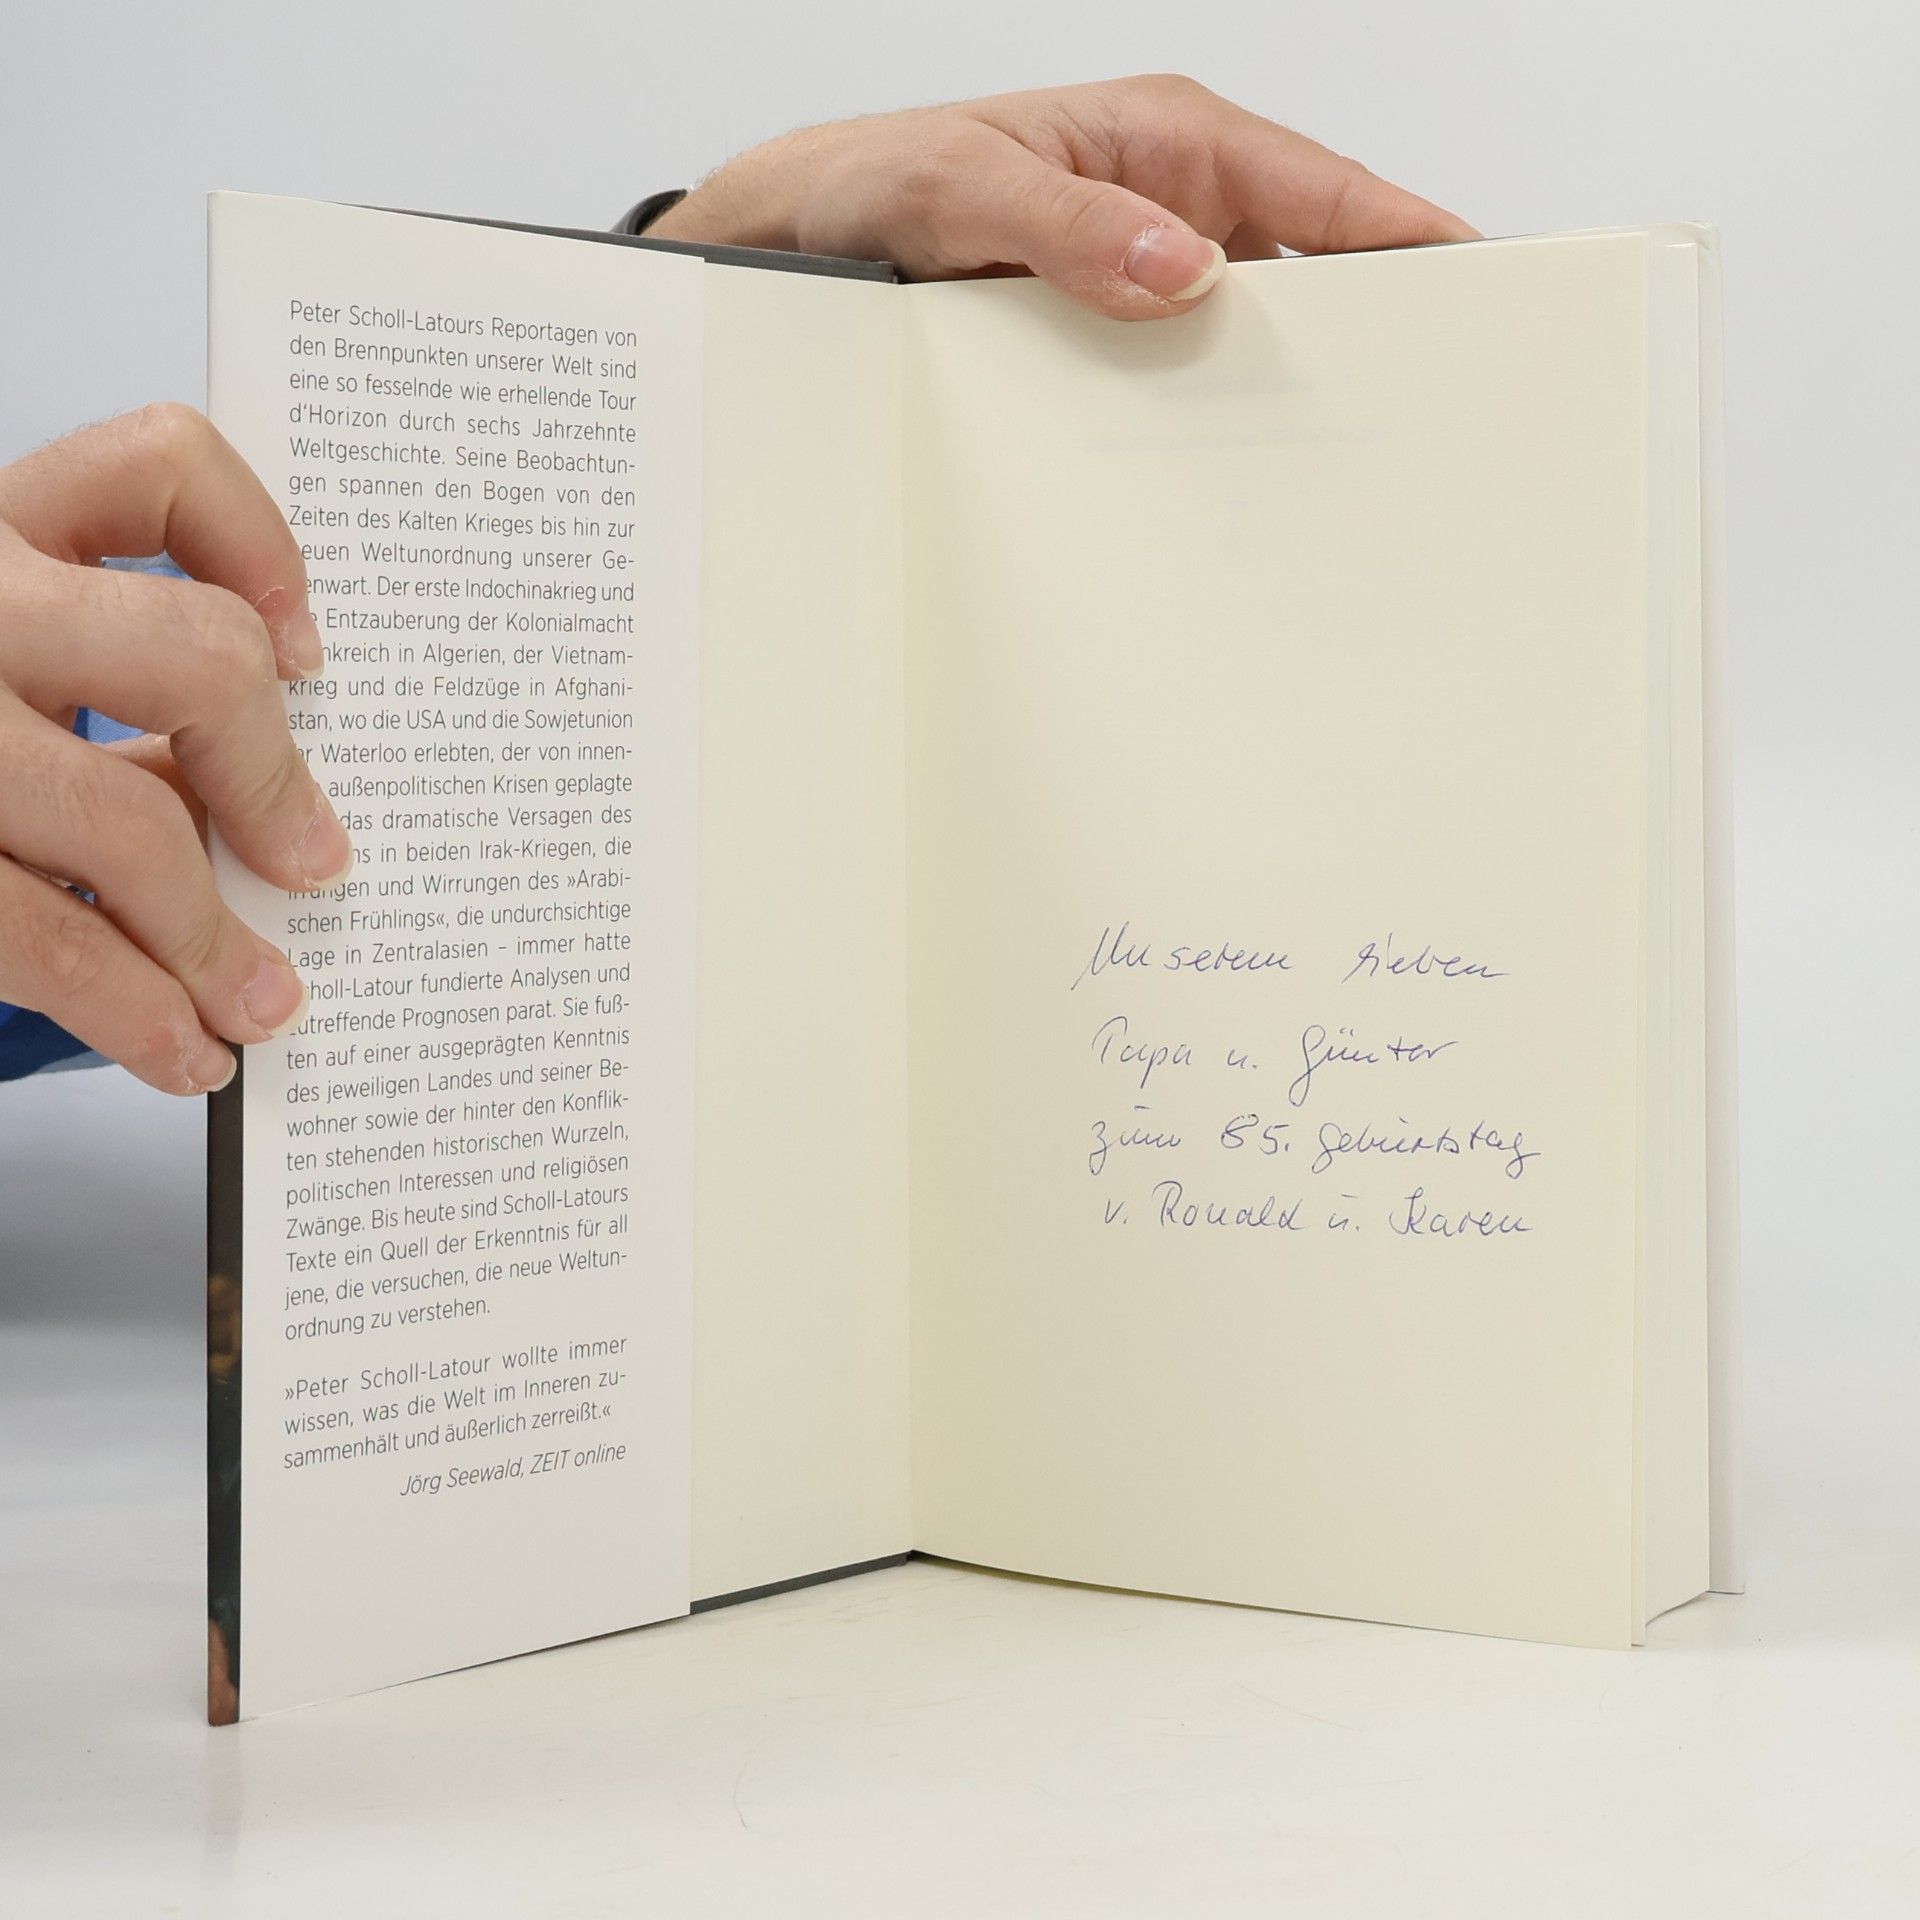 Peter Scholl-Latours Reportagen von
den Brennpunkten unserer Welt sind
eine so fesselnde wie erhellende Tour
d‘Horizon durch sechs Jahrzehnte
Weltgeschichte. Seine Beobachtun-
gen spannen den Bogen von den
Zeiten des Kalten Krieges bis hin zur
euen Weltunordnung unserer Ge-
enwart. Der erste Indochinakrieg und
e Entzauberung der Kolonialmacht
nkreich in Algerien, der Vietnam-
krieg und die Feldzüge in Afghani-
stan, wo die USA und die Sowjetunion
hr Waterloo erlebten, der von innen-
außenpolitischen Krisen geplagte
das dramatische Versagen des
ns in beiden Irak-Kriegen, die
Irrungen und Wirrungen des »Arabi-
schen Frühlings«, die undurchsichtige
Lage in Zentralasien – immer hatte
choll-Latour fundierte Analysen und
zutreffende Prognosen parat. Sie fuß-
ten auf einer ausgeprägten Kenntnis
des jeweiligen Landes und seiner Be-
wohner sowie der hinter den Konflik-
ten stehenden historischen Wurzeln,
politischen Interessen und religiösen
Zwänge. Bis heute sind Scholl-Latours
Texte ein Quell der Erkenntnis für all
jene, die versuchen, die neue Weltun-
ordnung zu verstehen.
»Peter Scholl-Latour wollte immer
wissen, was die Welt im Inneren zu-
sammenhält und äußerlich zerreißt.«
Jörg Seewald, ZEIT online
Unserem lieben
Papa u. Günter
zum 85. Geburtstag
v. Ronald u. Karen